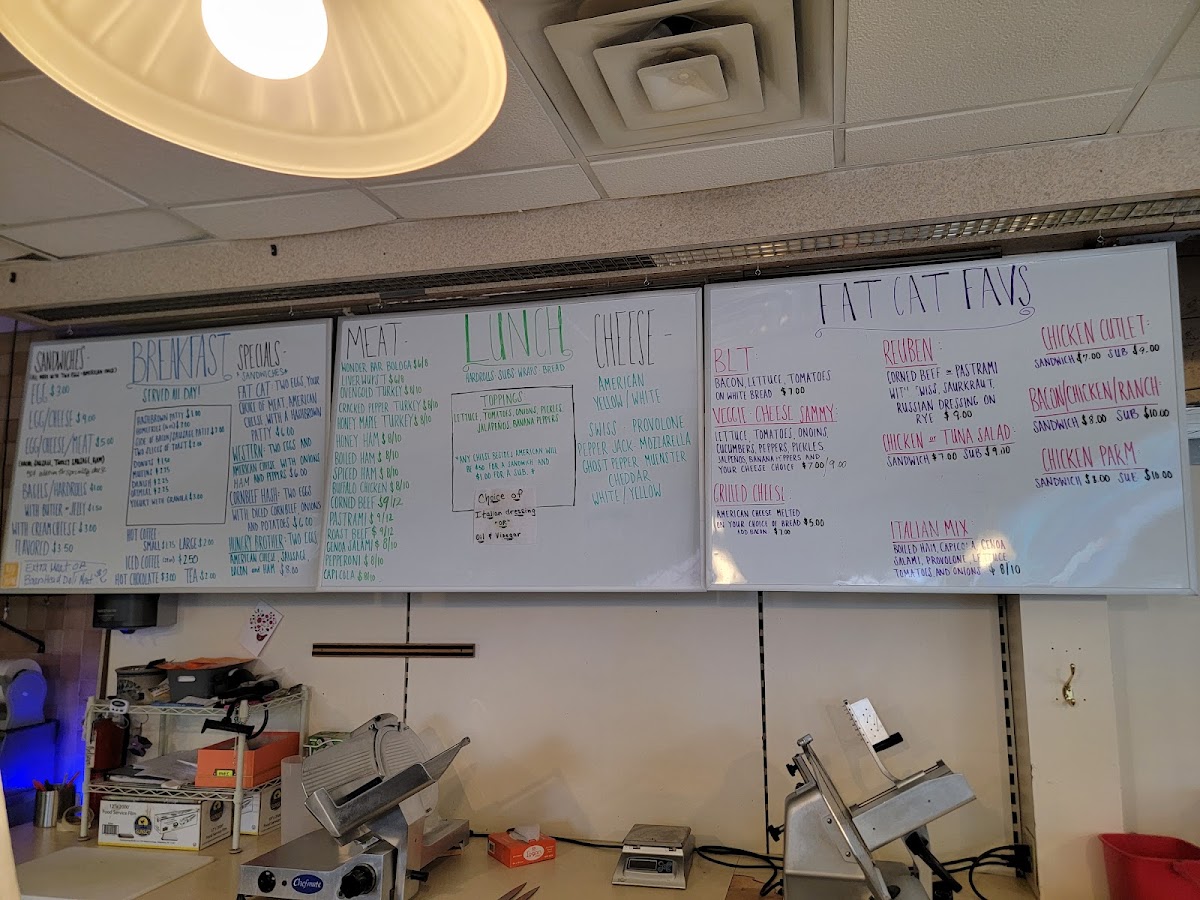 SANDWICHES -
EGG $3.00
EGG/CHEESE $4.00
EGG/CHEESE/MEAT $5.00
BAGELS/HARDROLLS $1.00
WITH BUTTER or JELLY $1.50
WITH CREAMCHEESE $3.00
FLAVORED $3.50
EXTRA MEAT OR
BREAKFAST
SERVED ALL DAY!
HASHBROWN PATTY $1.00
SIDE OF BACON/SAUSAGE PATTY $3.00
TWO SLICES OF TOAST $2.00
MUFFINS $2.25
DANISH $2.25
OATMEAL $2.25
YOGURT WITH GRANOLA $3.00
HOT COFFEE -
SMALL $1.75 LARGE $2.00
ICED COFFEE $2.50
HOT CHOCOLATE $3.00 TEA $2.00
SPECIALS -
*SANDWICHES*
FAT CAT: TWO EGGS, YOUR
CHOICE OF MEAT, AMERICAN
CHEESE WITH A HASHBROWN
PATTY $6.00
WESTERN: TWO EGGS AND
AMERICAN CHEESE WITH ONIONS
HAM AND PEPPERS $6.00
CORNBEEF HASH: TWO EGGS
WITH DICED CORNBEEF, ONIONS
AND POTATOS $6.00
HUNGRY BROTHER: TWO EGGS
AMERICAN CHEESE, SAUSAGE
BACON and HAM $8.00
MEAT -
WONDER BAR BOLOGA $6/8
LIVERWURST $6/8
OVENGOLD TURKEY $8/10
CRACKED PEPPER TURKEY $8/10
HONEY MAPLE TURKEY $8/10
HONEY HAM $8/10
BOILED HAM $8/10
SPICED HAM $8/10
BUFFALO CHICKEN $8/10
CORNED BEEF $9/12
PASTRAMI $9/12
ROAST BEEF $9/12
GENOA SALAMI $8/10
PEPPERONI $8/10
CAPICOLA $8/10
LUNCH
HARDROLLS SUBS WRAPS BREAD
TOPPINGS
LETTUCE, TOMATOES, ONIONS, PICKLES,
JALAPENOS, BANANA PEPPERS
*ANY CHEESE BESIDES AMERICAN WILL
BE $.50 FOR A SANDWICH AND
$1.00 FOR A SUB. *
Choice of
Italian dressing
"OR"
Oil & Vinegar
CHEESE -
AMERICAN
YELLOW/WHITE
SWISS PROVOLONE
PEPPER JACK MOZZARELLA
GHOST PEPPER MUENSTER
CHEDDAR
WHITE/YELLOW
FAT CAT FAVS
BLT
BACON, LETTUCE, TOMATOES
ON WHITE BREAD $7.00
VEGGIE CHEESE SAMMY:
LETTUCE, TOMATOES, ONOINS,
CUCUMBERS, PEPPERS, PICKLES
JALEPENOS BANANA PEPPERS AND
YOUR CHEESE CHOICE $7.00/9.00
GRILLED CHEESE
AMERICAN CHEESE MELTED
ON YOUR CHOICE OF BREAD $5.00
ADD BACON $7.00
REUBEN:
CORNED BEEF or PASTRAMI
WITH SWISS, SAURKRAUT,
RUSSIAN DRESSING ON
RYE $9.00
CHICKEN or TUNA SALAD:
SANDWICH $7.00 SUB $9.00
ITALIAN MIX
BOILED HAM, CAPICOLA, GENOA
SALAMI, PROVOLONE, LETTUCE
TOMATOES, AND ONIONS $8/10
CHICKEN CUTLET:
SANDWICH $7.00 SUB $9.00
BACON/CHICKEN/RANCH:
SANDWICH $8.00 SUB $10.00
CHICKEN PARM
SANDWICH $8.00 SUB $10.00
Food Service Film
Chefmate